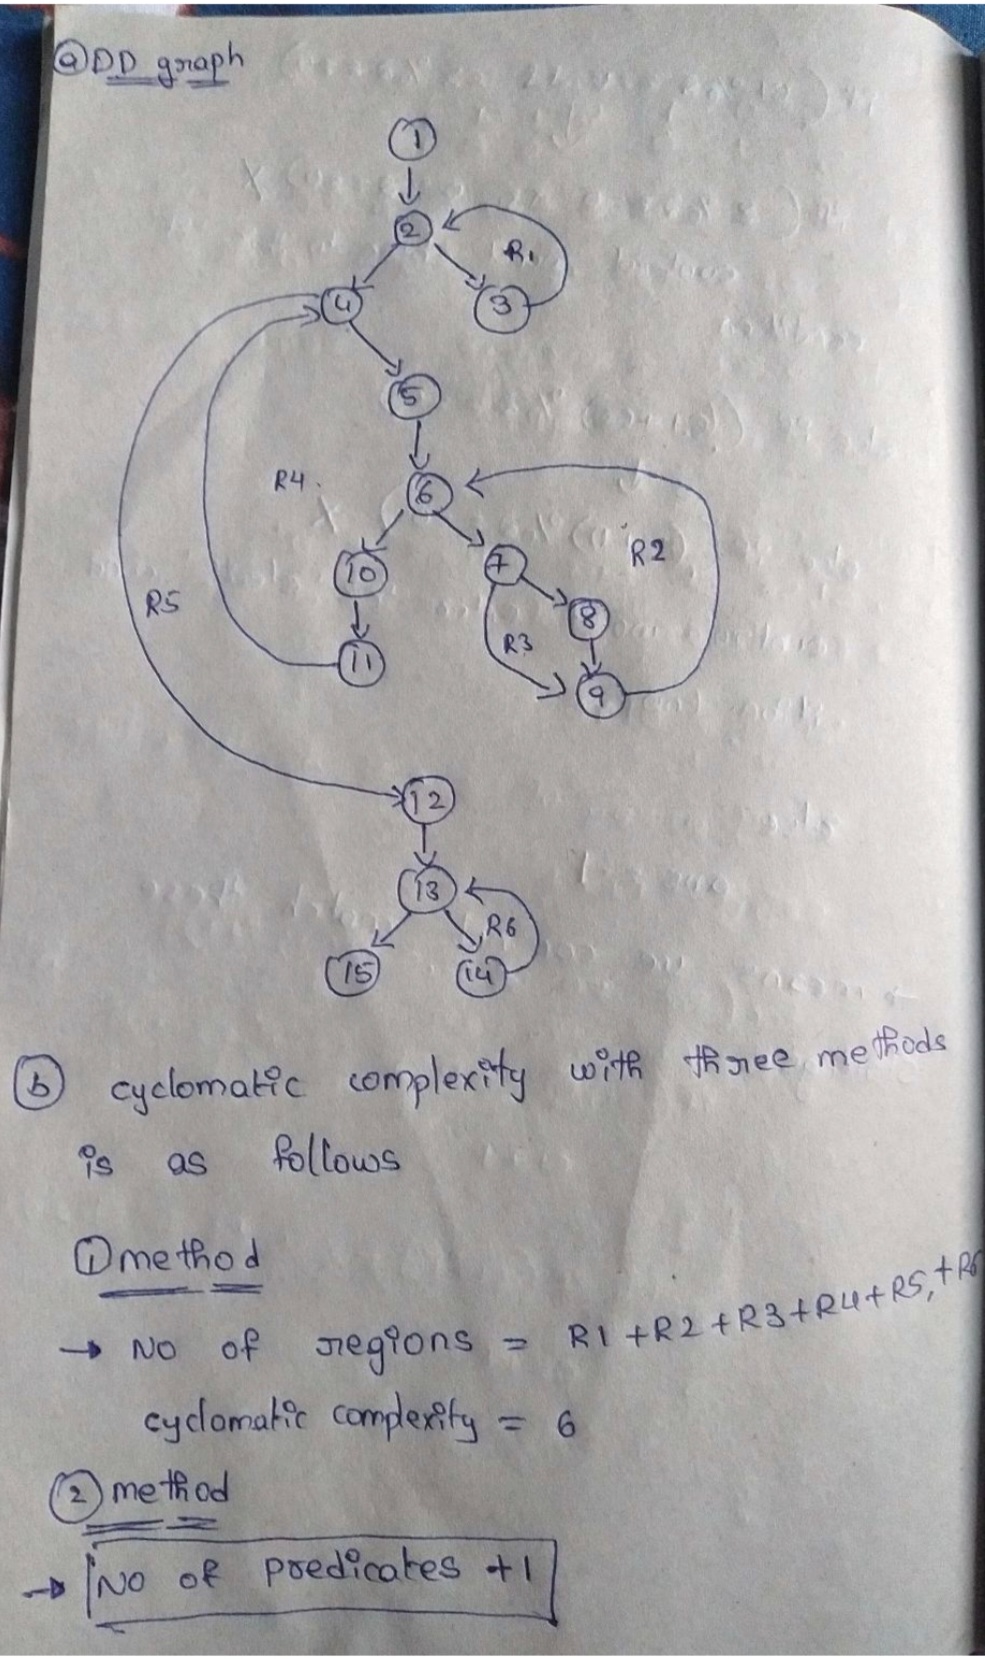 ⓐ DD graph
1
2
R1
4
3
5
R4
6
10
7
R2
8
R5
R3
11
9
12
13
R6
15
14
ⓑ cyclomatic complexity with three methods
is as follows
① method
→ No of regions = R1 + R2 + R3 + R4 + R5, + R6
cyclomatic complexity = 6
② method
→ No of predicates + 1